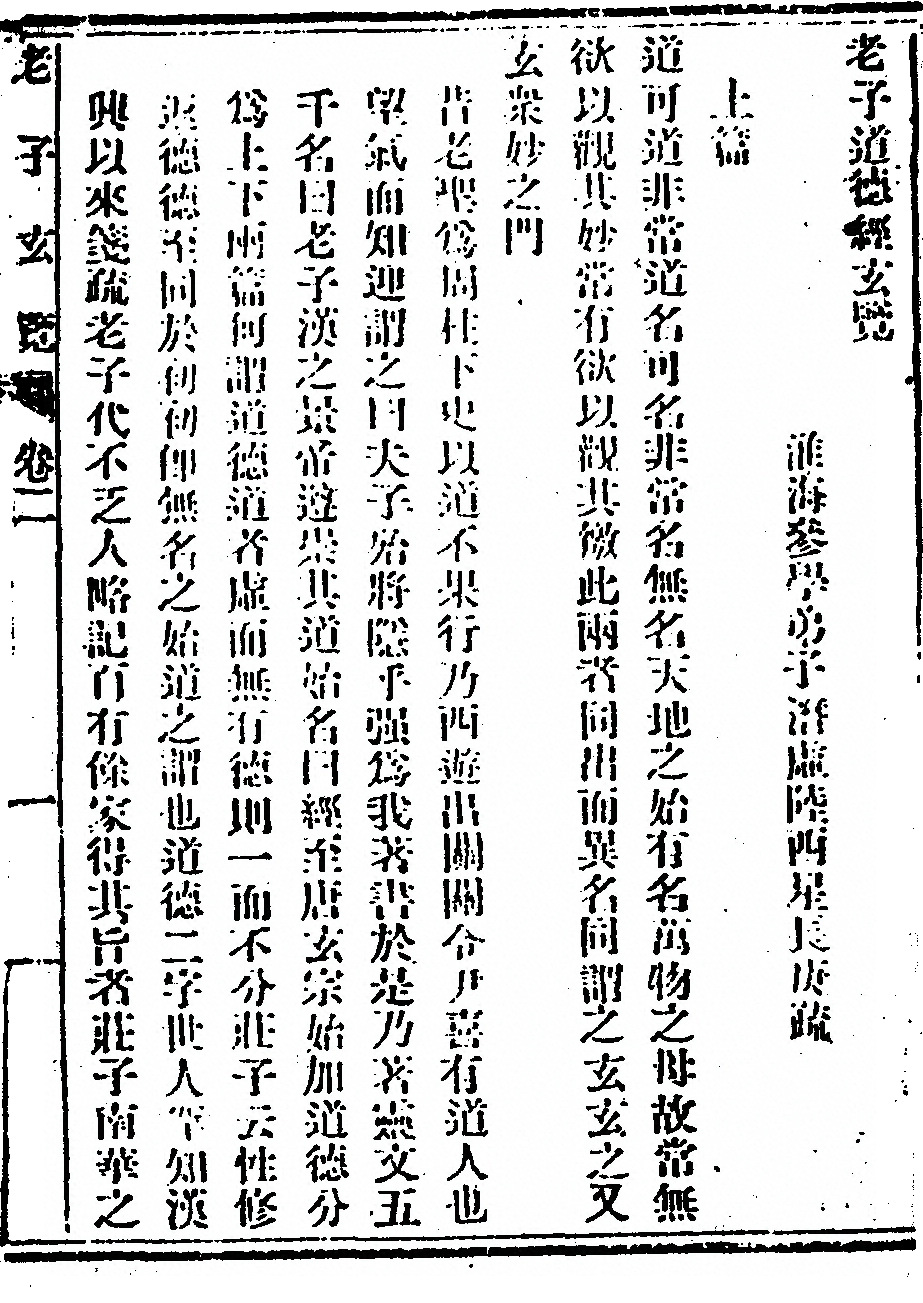 老子道德經玄覽
淮海參學弟子潛虛陸西星長庚疏
上篇
道可道非常道名可名非常名無名天地之始有名萬物之母故常無
欲以觀其妙常有欲以觀其徼此兩者同出而異名同謂之玄玄之又
玄衆妙之門
昔老聖爲周柱下史以道不果行乃西遊出關關令尹喜有道人也
望氣而知迎謂之曰夫子殆將隱乎强爲我著書於是乃著靈文五
千名曰老子漢之景帝遵崇其道始名曰經至唐玄宗始加道德分
爲上下兩篇何謂道德道者虛而無有德則一而不分莊子云性修
返德德至同於初初卽無名之始道之謂也道德二字世人罕知漢
興以來箋疏老子代不乏人略記百有餘家得其旨者莊子南華之
老子玄覽 卷二 一